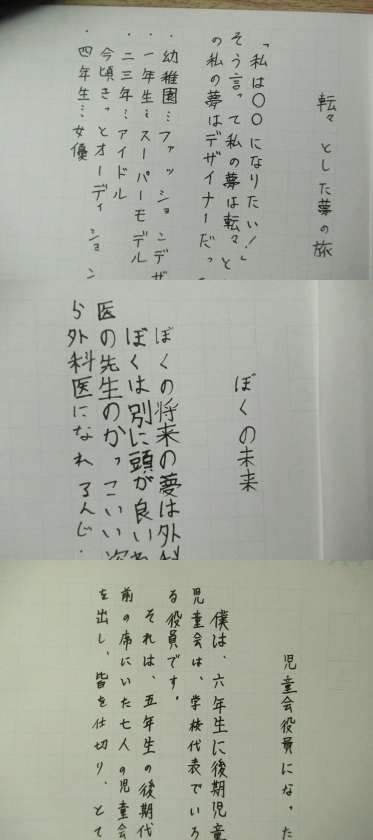 転々とした夢の旅
「私は〇〇になりたい!」
そう言って私の夢は転々と
の私の夢はデザイナーだっ
・幼稚園…ファッションデザ
・一年生…スーパーモデル
・二三年…アイドル
今頃きっとオーディション
・四年生…女優
ぼくの未来
ぼくの将来の夢は外科
ぼくは別に頭が良い
医の先生のかっこいい姿
ら外科医になれるんじ
児童会役員になった
僕は、六年生に後期児童
児童会は、学校代表でいろ
る役員です。
それは、五年生の後期代
前の席にいた七人の児童会
を出し、皆を仕切り、とて